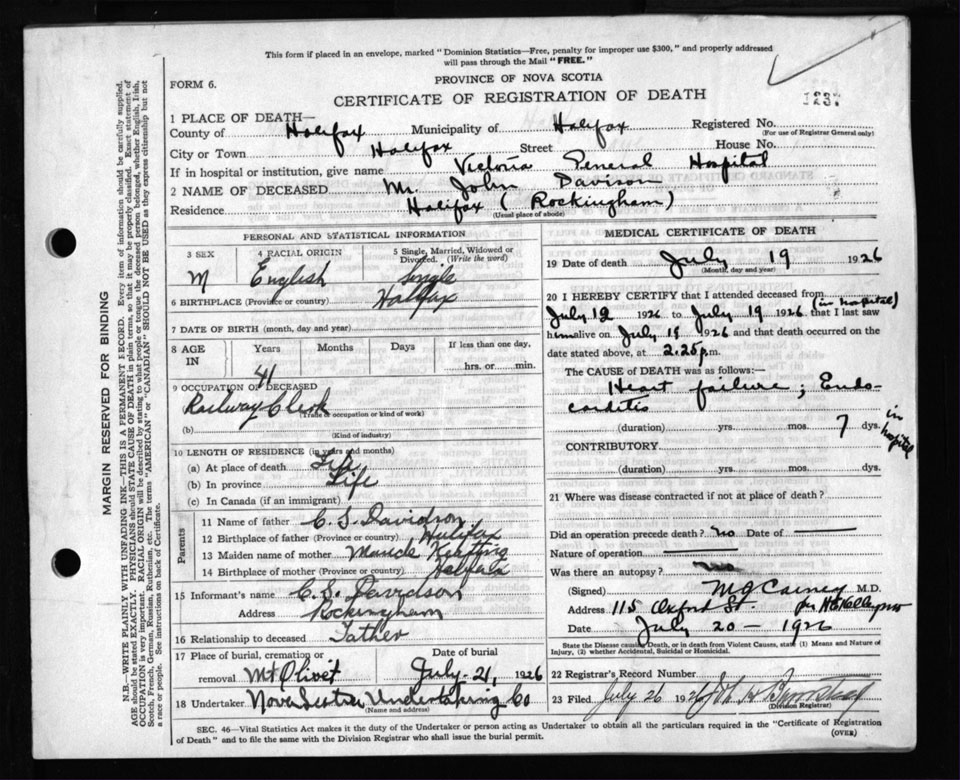 This form if placed in an envelope, marked "Dominion Statistics—Free, penalty for improper use $300," and properly addressed
will pass through the Mail "FREE."
FORM 6.
PROVINCE OF NOVA SCOTIA
CERTIFICATE OF REGISTRATION OF DEATH
1237
1 PLACE OF DEATH—
County of Halifax Municipality of Halifax Registered No.
(For use of Registrar General only)
City or Town Halifax Street House No.
If in hospital or institution, give name Victoria General Hospital
2 NAME OF DECEASED Mr. John Davison
Residence Halifax (Rockingham)
(Usual place of abode)
PERSONAL AND STATISTICAL INFORMATION
3 SEX 4 RACIAL ORIGIN 5 Single, Married, Widowed or
Divorced. (Write the word)
M English Single
6 BIRTHPLACE (Province or country) Halifax
7 DATE OF BIRTH (month, day and year)
8 AGE IN Years Months Days If less than one day,
hrs. or min.
41
9 OCCUPATION OF DECEASED
Railway Clerk
(Trade occupation or kind of work)
(b)
(Kind of industry)
10 LENGTH OF RESIDENCE (in years and months)
(a) At place of death Life
(b) In province Life
(c) In Canada (if an immigrant)
Parents
11 Name of father C. S. Davidson
12 Birthplace of father (Province or country) Halifax
13 Maiden name of mother Keatting
14 Birthplace of mother (Province or country) Halifax
15 Informant's name C. S. Davidson
Address Rockingham
16 Relationship to deceased Father
17 Place of burial, cremation or Date of burial
removal Mt Olivet July 21, 1926
18 Undertaker Nova Scotia Undertaking Co
(Name and address)
MEDICAL CERTIFICATE OF DEATH
19 Date of death July 19 1926
(Month, day and year)
20 I HEREBY CERTIFY that I attended deceased from (in hospital)
July 12 1926 to July 19 1926 that I last saw
him alive on July 19 1926 and that death occurred on
date stated above, at 2.25 p.m.
The CAUSE OF DEATH was as follows:—
Heart failure; Endo-
carditis
(duration) yrs. mos. 7 dys. in hospital
CONTRIBUTORY
(duration) yrs. mos. dys.
21 Where was disease contracted if not at place of death?
Did an operation precede death? no Date of
Nature of operation
Was there an autopsy?
(Signed) M.D.
Address 115 Oxford St.
Date July 20 – 1926
State the Disease causing Death, or in death from Violent Causes, state (1) Means and Nature of
Injury, (2) whether Accidental, Suicidal or Homicidal.
22 Registrar's Record Number
23 Filed July 26 1926
(Division Registrar)
SEC. 46—Vital Statistics Act makes it the duty of the Undertaker or person acting as Undertaker to obtain all the particulars required in the "Certificate of Registration
of Death" and to file the same with the Division Registrar who shall issue the burial permit.
(OVER)
MARGIN RESERVED FOR BINDING
N.B.—WRITE PLAINLY WITH UNFADING INK—THIS IS A PERMANENT RECORD. Every item of information should be carefully supplied.
AGE should be stated EXACTLY. PHYSICIANS should STATE CAUSE OF DEATH in plain terms, so that it may be properly classified. Exact statement of
OCCUPATION is very important. RACIAL ORIGIN will be described by stating to what people or tongue the deceased person belonged, whether English, Irish,
Scotch, French, German, Russian, Ruthenian, etc. The terms "AMERICAN" or "CANADIAN" SHOULD NOT BE USED as they express citizenship but not
a race or people. See instructions on back of Certificate.